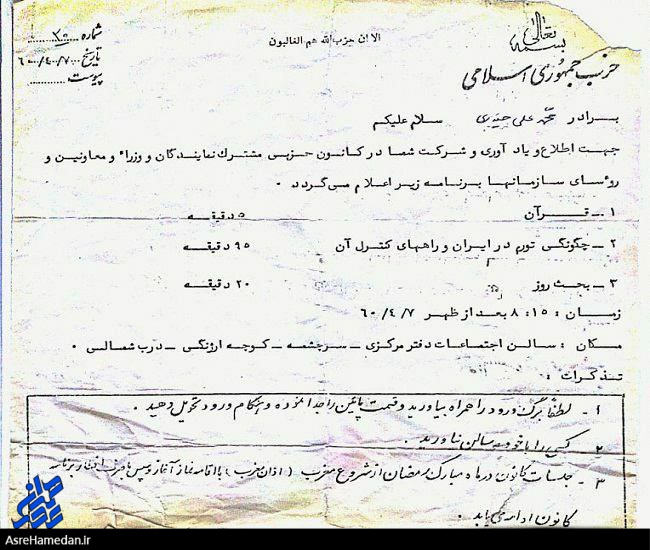 بسمه تعالی
الا ان حزب الله هم الغالبون
شماره ۳۰
تاریخ ۶۰/۴/۷
پیوست
حزب جمهوری اسلامی
برادر محمد علی حیدری سلام علیکم
جهت اطلاع و یاد آوری و شرکت شما در کانون حزبی مشترك نمایندگان و وزراء و معاونین و
روسای سازمانها برنامه زیر اعلام می گردد .
۱ ـ قرآن ۵ دقیقه
۲ ـ چگونگی تورم در ایران و راههای کنترل آن ۹۵ دقیقه
۳ ـ بحث روز ۲۰ دقیقه
زمان : ۸:۱۵ بعد از ظهر ۶۰/۴/۷
مکان : سالن اجتماعات دفتر مرکزی ـ سرچشمه ـ کوچه ارژنگی ـ درب شمالی .
تذکرات :
۱ - لطفاً برگ ورود را همراه بیاورید و قسمت پائین را جدا نموده و هنگام ورود تحویل دهید .
۲ - کسی را با خود به سالن نیاورید .
۳ - جلسات کانون در ماه مبارک رمضان از شروع مغرب ( اذان مغرب ) با اقامه نماز آغاز و سپس با صرف افطار برنامه
کانون ادامه می یابد .
AsreHamedan.ir